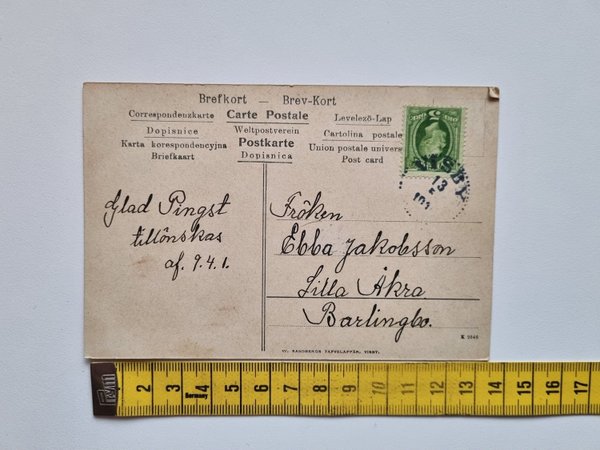 Brefkort — Brev-Kort
Correspondenzkarte Carte Postale Levelező-Lap
Dopisnice Weltpostverein Cartolina postale
Karta korespondencyjna Postkarte Union postale univers
Briefkaart Dopisnica Post card
VISBY
13
5
Glad Pingst
tillönskas
af. 9.4.1.
Fröken
Ebba Jakobsson
Lilla Åkra
Barlingbo.
W. SANDBERGS TAFVELAFFÄR, VISBY.
1 2 3 4 5 6 7 8 9 10 11 12 13 14 15 16 17
Germany